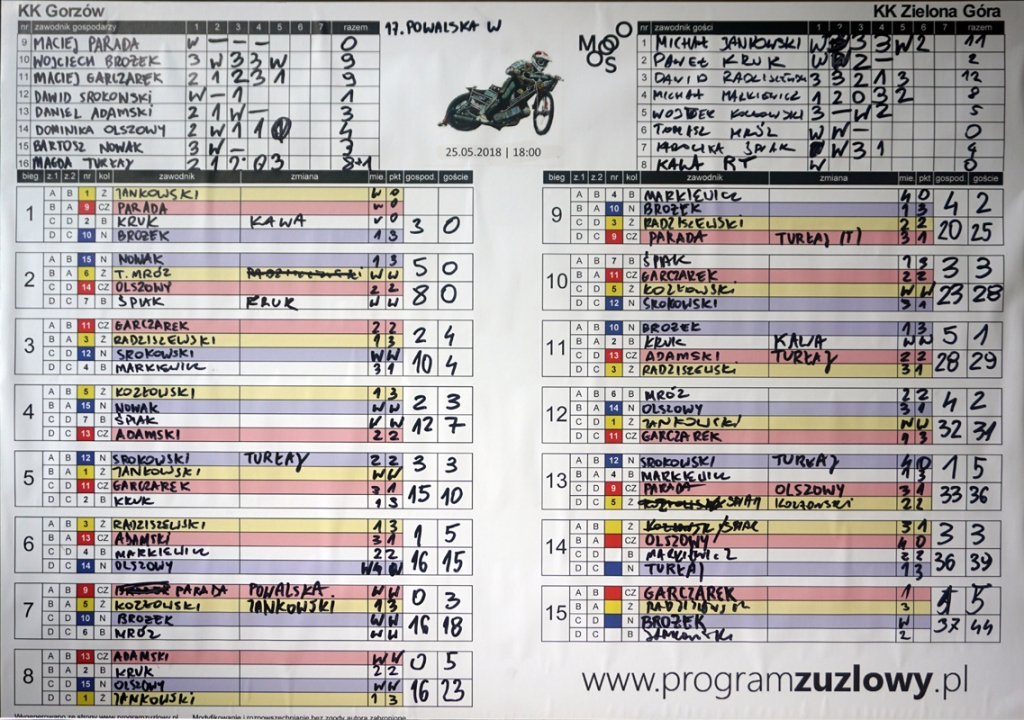 KK Gorzów
17. POWALSKA W
KK Zielona Góra
nr zawodnik gospodarzy 1 2 3 4 5 6 7 razem
9 MACIEJ PARADA W - - - 0
10 WOJCIECH BROŻEK 3 W 3 3 W 9
11 MACIEJ GARCZAREK 2 1 2 3 1 9
12 DAWID SROKOWSKI W - 1 1
13 DANIEL ADAMSKI 2 1 W - 3
14 DOMINIKA OLSZOWY 2 W 1 1 0 4
15 BARTOSZ NOWAK 3 W - 3
16 MAGDA TURŁAY 2 1 2 0 3 8+1
MOOOOS
25.05.2018 | 18:00
nr zawodnik gości 1 2 3 4 5 6 7 razem
1 MICHAŁ JANKOWSKI W 3 3 W 2 11
2 PAWEŁ KRUK W 2 - 2
3 DAVID RADZISZEWSKI 3 3 2 1 3 12
4 MICHAŁ MARKIEWICZ 1 2 0 3 2 8
5 WOJTEK KOZŁOWSKI 3 - W 2 5
6 TOMASZ MRÓZ W W - 0
7 ŚPIAK W 3 1 4
8 KAWA RT W 0
bieg z.1 z.2 nr kol zawodnik zmiana mie pkt gospod. goście
1
A B 1 Ż JANKOWSKI W 0
B A 9 CZ PARADA
C D 2 B KRUK KAWA
D C 10 N BROŻEK 1 3
3 0
2
A B 15 N NOWAK 1 3 5 0
B A 6 Ż T. MRÓZ W W
C D 14 CZ OLSZOWY 2 2 8 0
D C 7 B ŚPIAK KRUK W W
3
A B 11 CZ GARCZAREK 2 2 2 4
B A 3 Ż RADZISZEWSKI 1 3
C D 12 N SROKOWSKI W W 10 4
D C 4 B MARKIEWICZ 3 1
4
A B 5 Ż KOZŁOWSKI 1 3 2 3
B A 15 N NOWAK W W
C D 7 B ŚPIAK W 12 7
D C 13 CZ ADAMSKI 2 2
5
A B 12 N SROKOWSKI TURŁAJ 2 2 3 3
B A 1 Ż JANKOWSKI W W
C D 11 CZ GARCZAREK 3 1 15 10
D C 2 B KRUK 1 3
6
A B 3 Ż RADZISZEWSKI 1 3 1 5
B A 13 CZ ADAMSKI 3 1
C D 4 B MARKIEWICZ 2 2 16 15
D C 14 N OLSZOWY
7
A B 9 CZ PARADA POWALSKA W W 0 3
B A 5 Ż KOZŁOWSKI JANKOWSKI 1 3
C D 10 N BROŻEK W W 16 18
D C 6 B MRÓZ W W
8
A B 13 CZ ADAMSKI W W 0 5
B A 2 B KRUK 2 2
C D 15 N OLSZOWY W W 16 23
D C 1 Ż JANKOWSKI 1 3
bieg z.1 z.2 nr kol zawodnik zmiana mie pkt gospod. goście
9
A B 4 B MARKIEWICZ 4 0 4 2
B A 10 N BROŻEK 1 3
C D 3 Ż RADZISZEWSKI 2 2 20 25
D C 9 CZ PARADA TURŁAJ (T) 3 1
10
A B 7 B ŚPIAK 1 3 3 3
B A 11 CZ GARCZAREK 2 2
C D 5 Ż KOZŁOWSKI W W 23 28
D C 12 N SROKOWSKI 3 1
11
A B 10 N BROŻEK 1 3 5 1
B A 2 B KRUK KAWA W W
C D 13 CZ ADAMSKI TURŁAJ 2 2 28 29
D C 3 Ż RADZISZEWSKI 3 1
12
A B 6 B MRÓZ 2 2 4 2
B A 14 N OLSZOWY 3 1
C D 1 Ż JANKOWSKI W W 32 31
D C 11 CZ GARCZAREK 1 3
13
A B 12 N SROKOWSKI TURŁAJ 4 0 1 5
B A 4 B MARKIEWICZ 1 3
C D 9 CZ PARADA OLSZOWY 3 1 33 36
D C 5 Ż KOZŁOWSKI 2 2
14
A B Ż ŚPIAK 3 1 3 3
B A CZ OLSZOWY 4 0
C D B MARKIEWICZ 2 2 36 39
D C N TURŁAJ 1 3
15
A B CZ GARCZAREK 1 5
B A Ż RADZISZEWSKI 3
C D N BROŻEK W 37 44
D C B 2
www.programzuzlowy.pl
Wygenerowano ze strony www.programzuzlowy.pl Modyfikowanie i rozpowszechnianie bez zgody autora zabronione